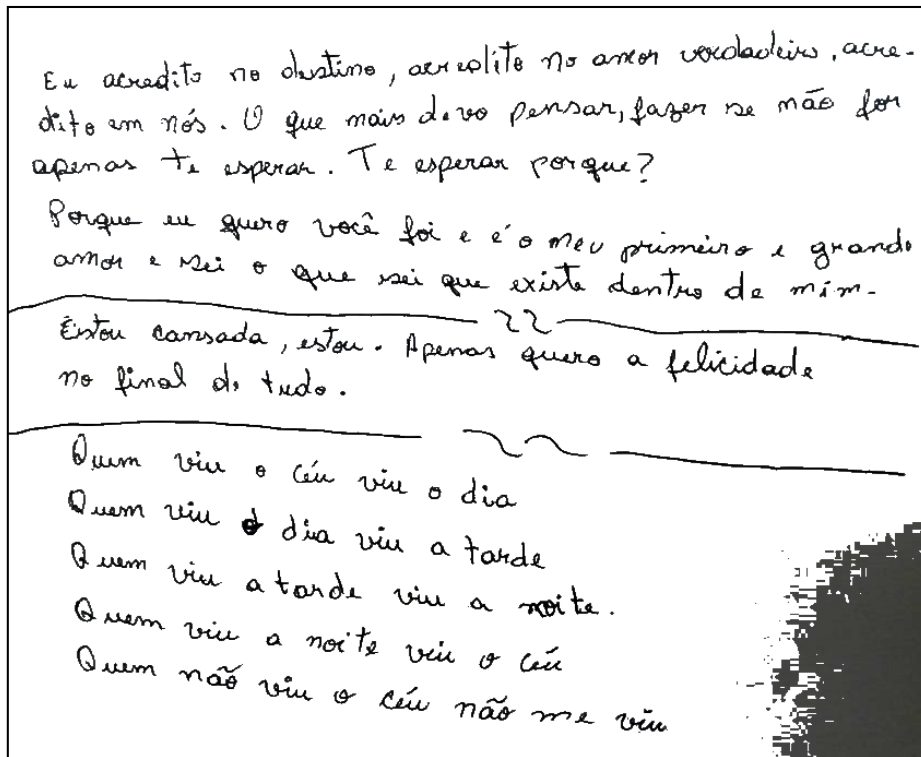 Eu acredito no destino, acredito no amor verdadeiro, acre-
dito em nós. O que mais devo pensar, fazer se não for
apenas te esperar. Te esperar porque?
Porque eu quero você foi e é o meu primeiro e grande
amor e sei o que sei que existe dentro de mim.
Estou cansada, estou. Apenas quero a felicidade
no final de tudo.
Quem viu o céu viu o dia
Quem viu o dia viu a tarde
Quem viu a tarde viu a noite.
Quem viu a noite viu o céu
Quem não viu o céu não me viu